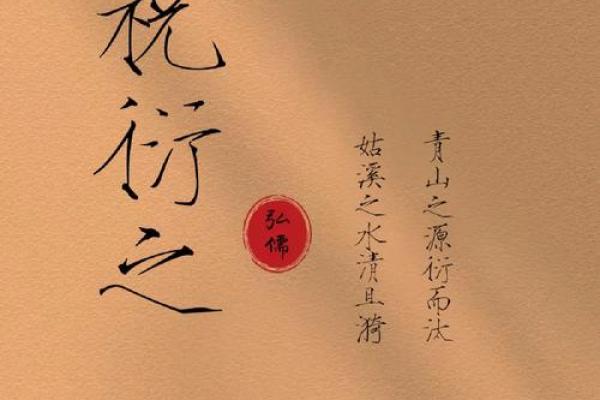 青山之源衍而汰
姑溪之水清且漪
弘儒
祝衍之